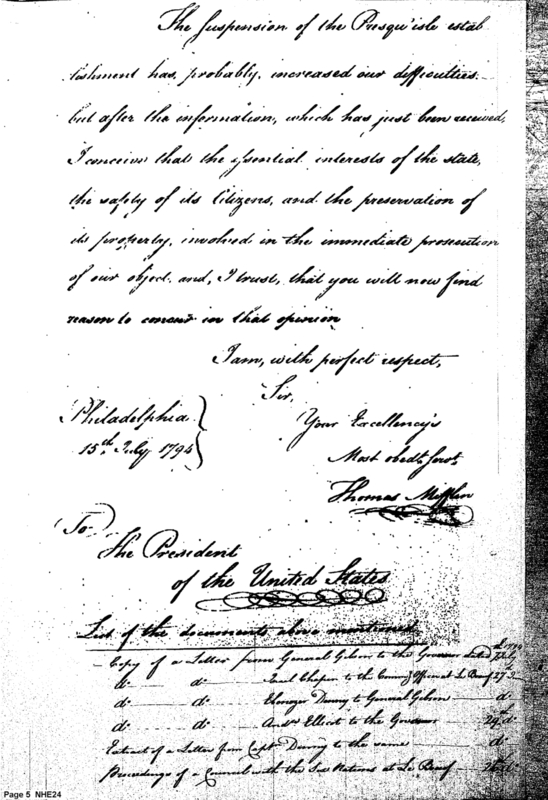 The Suspension of the Presqu'isle estab
lishment has, probably, increased our difficulties.
but after the information, which has just been received,
I conceive that the essential interests of the state,
the safety of its Citizens, and the preservation of
its property, involved in the immediate prosecution
of our object. and, I trust, that you will now find
reason to concur in that opinion
I am, with perfect respect,
Sir,
Your Excellency's
Most obedt. Servt.
Thomas Mifflin
Philadelphia
15th July 1794
To
The President
of the United States
List of the documents above mentioned
Copy of a Letter from General Gibson to the Governor dated
do. do. Chapin to the Officer at Le Beuf 27
do. do. Ebenezer Denny to General Gibson do.
do. do. Andw. Ellicot to the Governor 29 do.
Extract of a Letter from Captn. Denny to the same do.
Proceedings of a Council with the Six Nations at Le Beuf
Page 5 NHE24